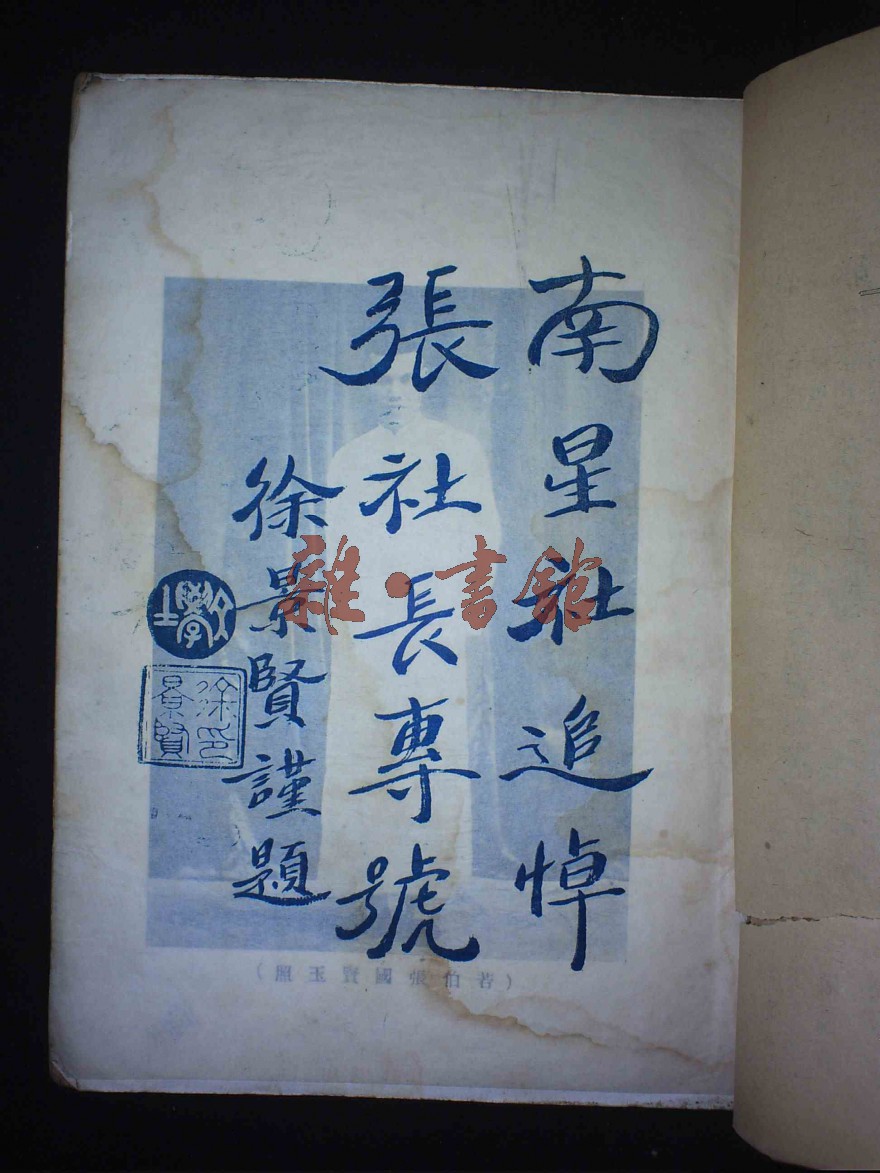 南星社追悼
張社長專號
徐景賢謹題
文學士
徐景賢印
雜·書館
（若伯張國賢玉照）